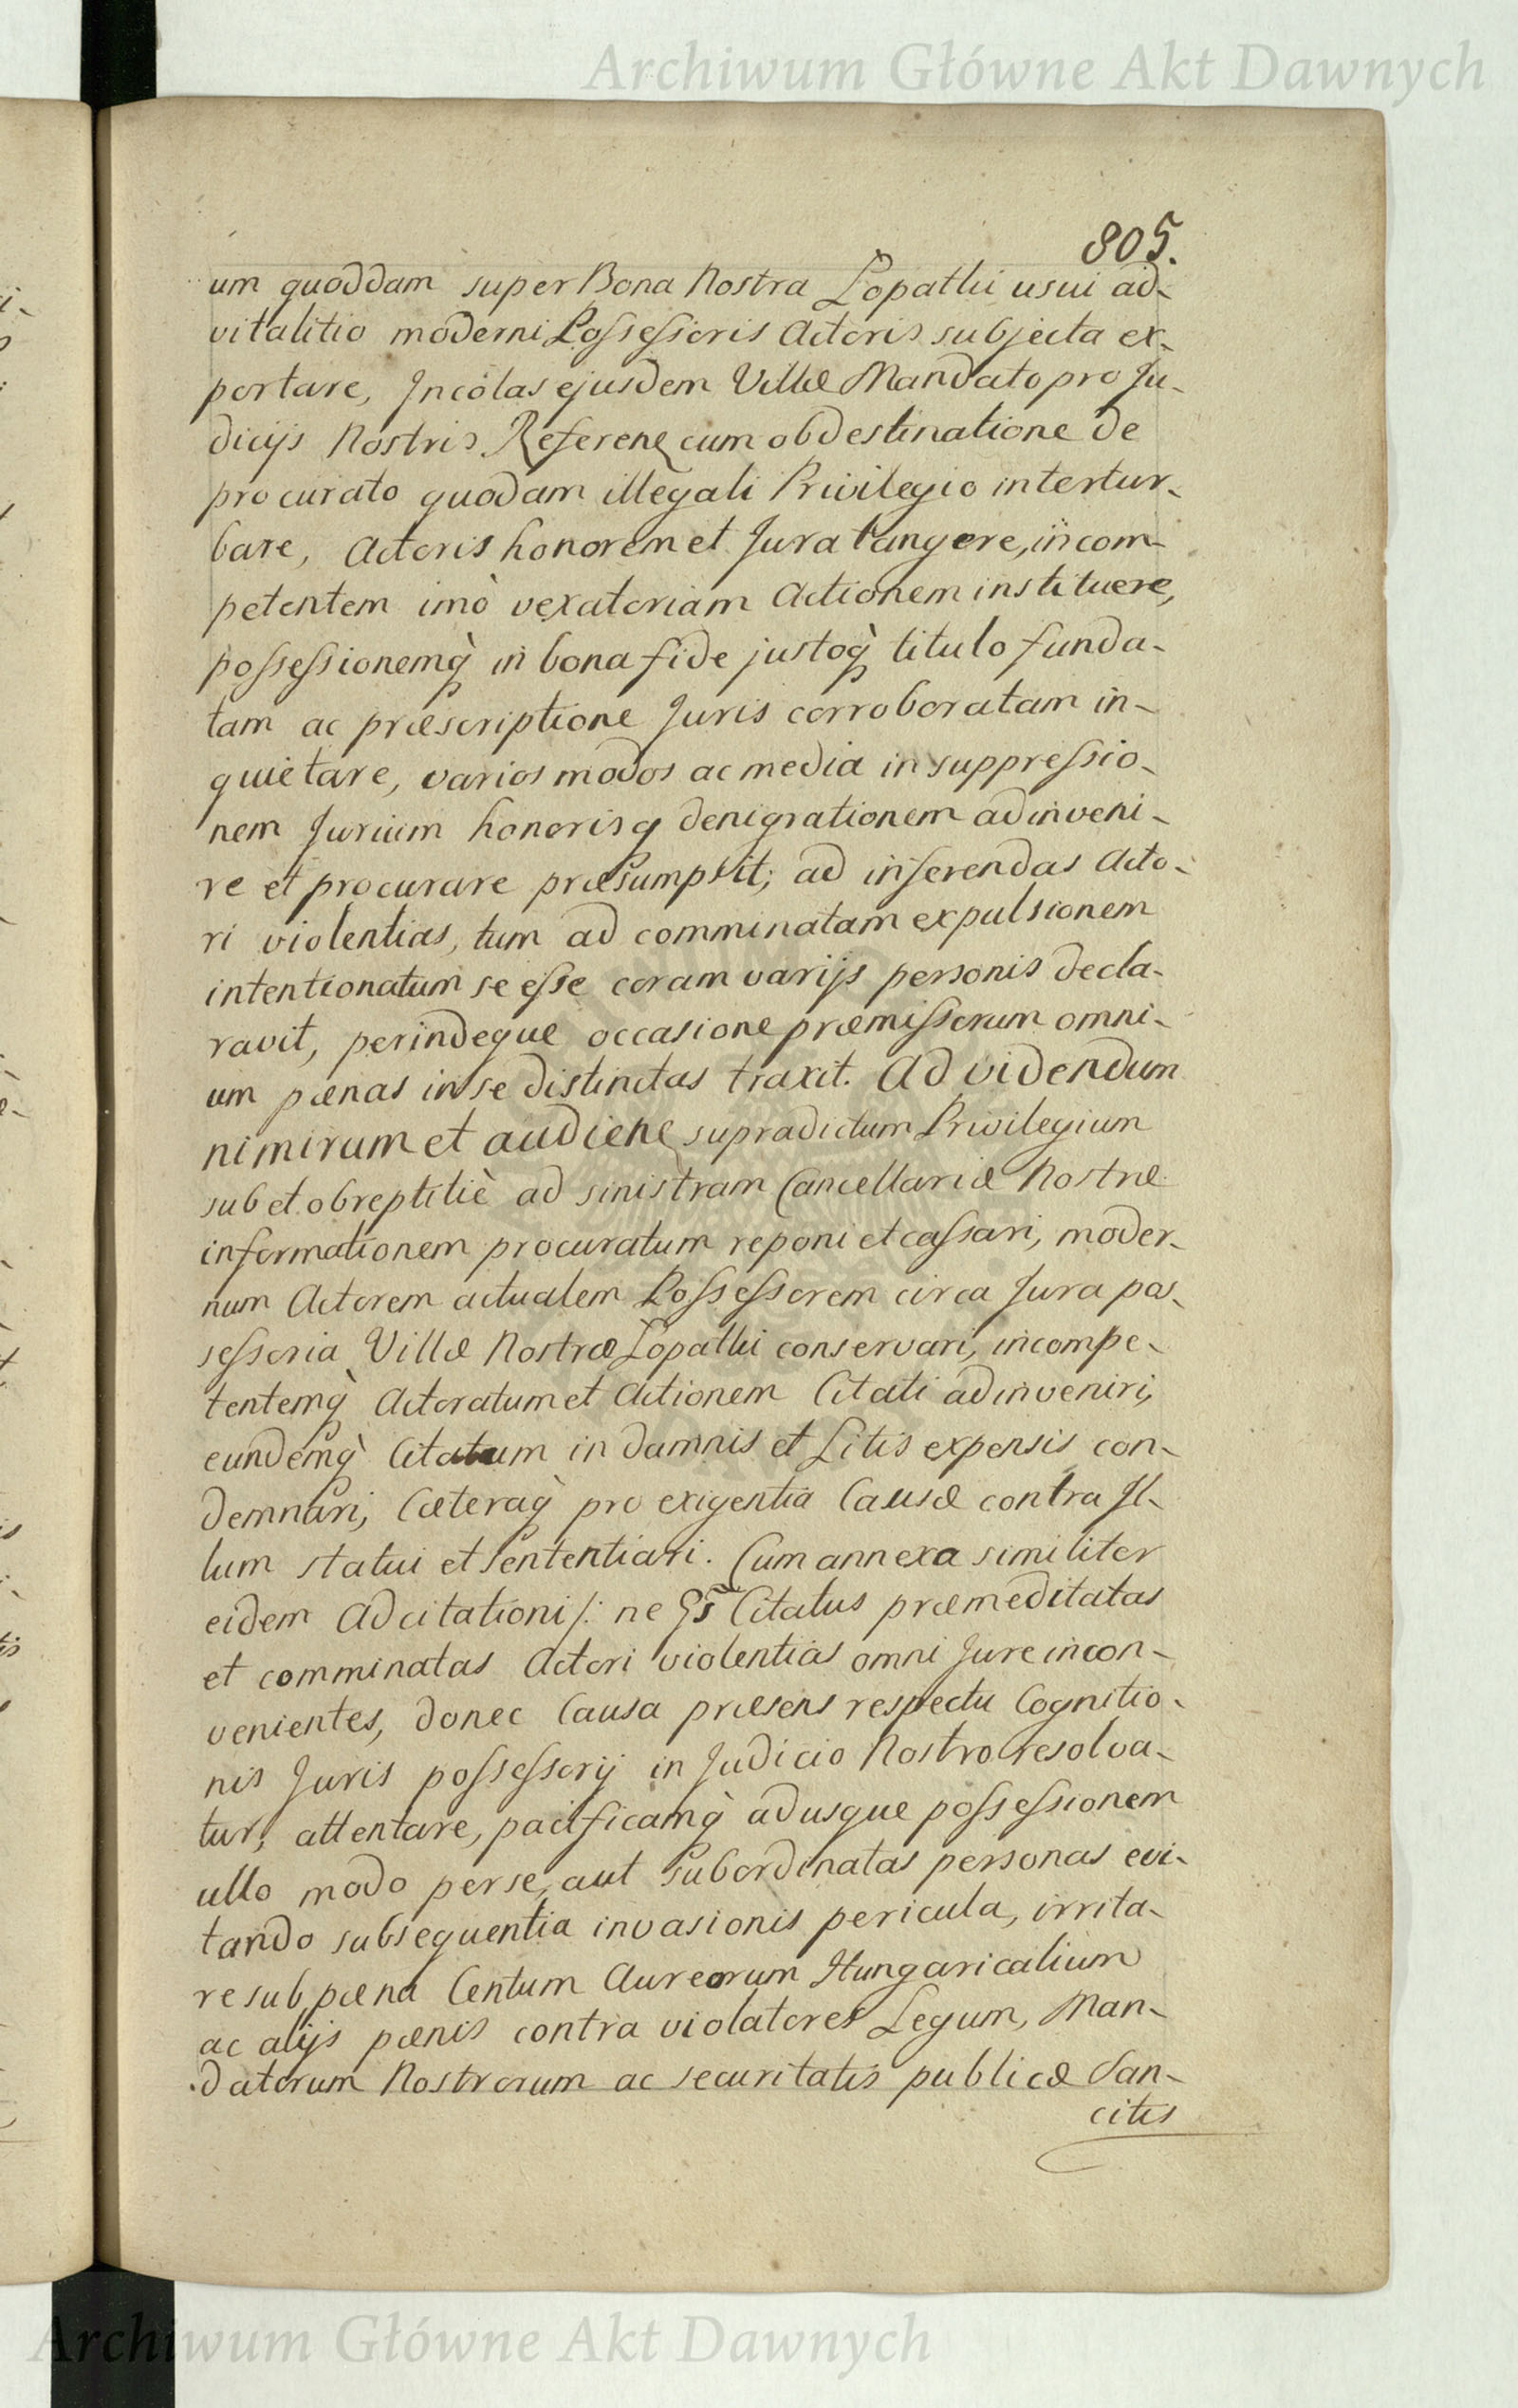 Archiwum Główne Akt Dawnych
805.
um quoddam super Bona Nostra Lopathi usui ad-
vitalitio moderni Possessoris Actoris subjecta ex-
portare, Incolas ejusdem Villæ Mandato pro Ju-
dicijs Nostris Referen cum obdestinatione de
procurato quodam illegali Privilegio intertur-
bare, Actoris honorem et Jura tangere, incom-
petentem imò vexatoriam Actionem instituere,
possessionemq̀ in bona fide justoq̀ titulo funda-
tam ac præscriptione Juris corroboratam in-
quietare, varios modos ac media in suppressio-
nem Jurium honorisq denigrationem adinveni-
re et procurare præsumpsit; ad inferendas Acto-
ri violentias, tum ad comminatam expulsionem
intentionatum se esse coram varijs personis decla-
ravit, perindeque occasione præmissorum omni-
um pænas in se distinctas traxit. Ad videndum
nimirum et audien supradictum Privilegium
sub et obreptitiè ad sinistram Cancellariæ Nostræ
informationem procuratum reponi et cassari, moder-
num Actorem actualem Possessorem circa Jura pos-
sessoria Villæ Nostræ Lopathi conservari, incompe-
tentemq̀ Actoratum et Actionem Citati adinveniri,
eundemq̀ Citatum in damnis et Litis expensis con-
demnari, Cæteraq̀ pro exigentia Causæ contra Il-
lum statui et sententiari. Cum annexa similiter
eidem Adcitationi /: ne Gs̃ Citatus præmeditatas
et comminatas Actori violentias omni Jure incon-
venientes, donec Causa præsens respectu Cognitio-
nis Juris possessorij in Judicio Nostro resolva-
tur, attentare, pacificamq̀ adusque possessionem
ullo modo per se, aut subordinatas personas evi-
tando subsequentia invasionis pericula, irrita-
re sub pæna Centum Aureorum Hungaricalium
ac alijs pænis contra violatores Legum, Man-
datorum Nostrorum ac securitatis publicæ San-
citis
Archiwum Główne Akt Dawnych